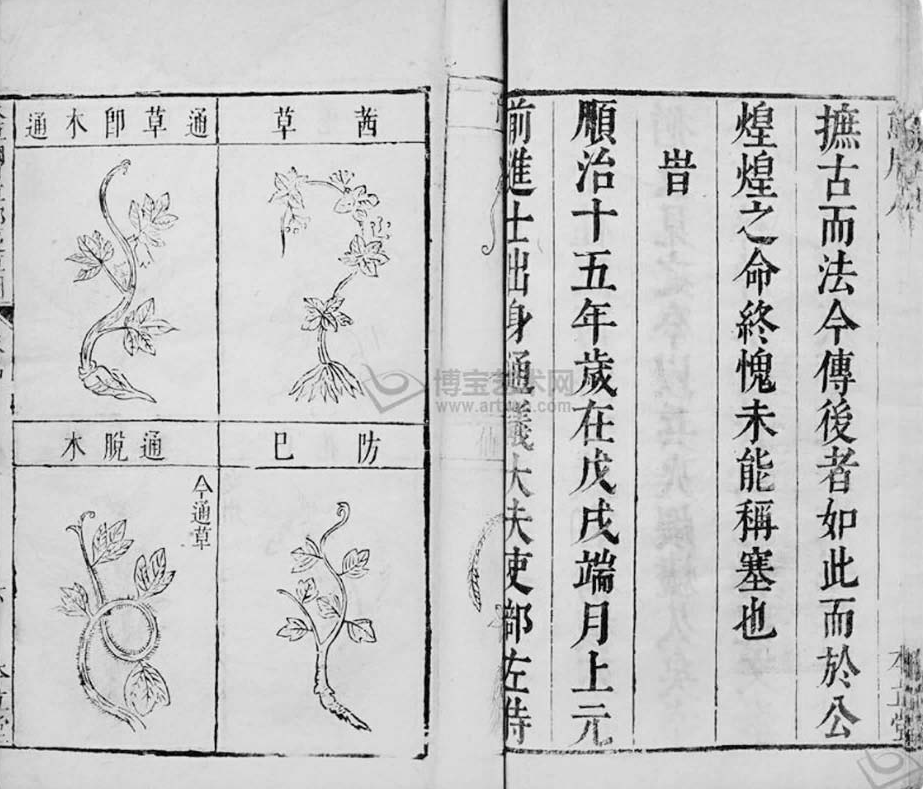 撫古而法今傳後者如此而於公
煌煌之命終愧未能稱塞也
旹
順治十五年歲在戊戌端月上元
前進士出身通議大夫吏部左侍
茜草
通草即木通
防巳
通脫木
今通草
本立堂
博宝艺术网